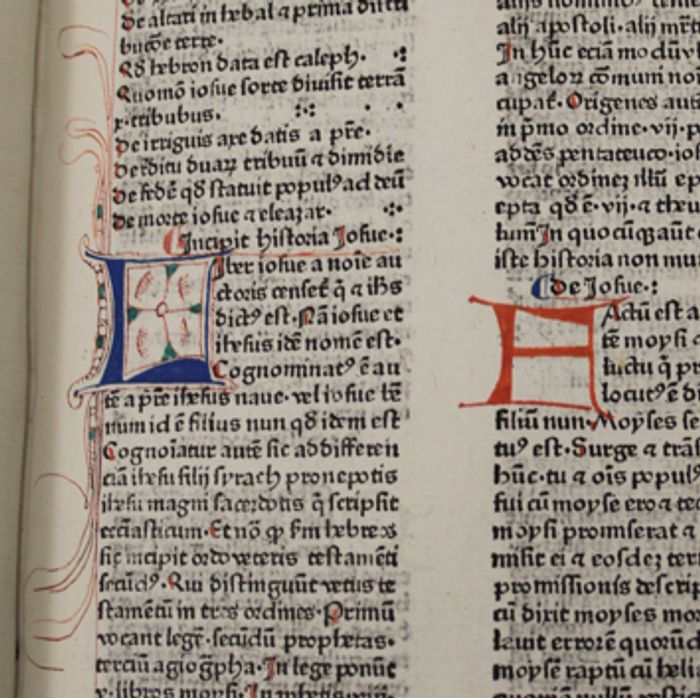 de altari in hebal ⁊ prima dicti
bucōe terre.
Qđ hebron data est caleph.
Quomō iosue sorte diuisit terrā
x. tribubus.
De irriguis axe datis a p̄re.
De reditu duarꝝ tribuū ⁊ dimidie
De fedē qđ statuit populꝰ ad deū
De morte iosue ⁊ eleazar.
Incipit historia Josue.
Liber iosue a noīe au
ctoris censet̄ q̄ ⁊ ih̄s
dictꝰ est. Nā iosue et
ihesus idē nomē est.
Cognominatꝰ ē au
tē a p̄re ihesus naue. vel iosue bē
num id ē filius nun qđ idem est
Cognoīatur autē sic ad differen
ciā ihesu filij syrach pronepotis
ihesu magni sacerdotis q̄ scripsit
ecciasticum. Et nō ꝙ s̄m hebreos
sic incipit ordo veteris testamēti
secūdꝰ. Qui distinguūt vetus te
stamētū in tres ordines. Primū
vocant legē. secūdū prophetas.
terciū agiogpha. In lege ponūt
v. libros moysi. In
alij apostoli. alij
In hūc eciā modū
angeloꝝ cōmuni
cupat̄. Origenes
in p̄mo ordine. vij.
ad dēs pentateuco.
vocat ordinez illū
epta qđ ē. vij. ⁊
bum In quocūqꝫ
iste historia non
De Josue.
Actū est a
tē moysi
luctu q̄
locutꝰ ē
filiū nun. Moyses
tuꝰ est. Surge ⁊
hūc. tu ⁊ oīs populꝰ
fui cū moyse ero ⁊
moysi promiserat ⁊
misit ei ⁊ eosdez
promissionis
cū dixit moyses
lauit errorē
moysē raptū cū